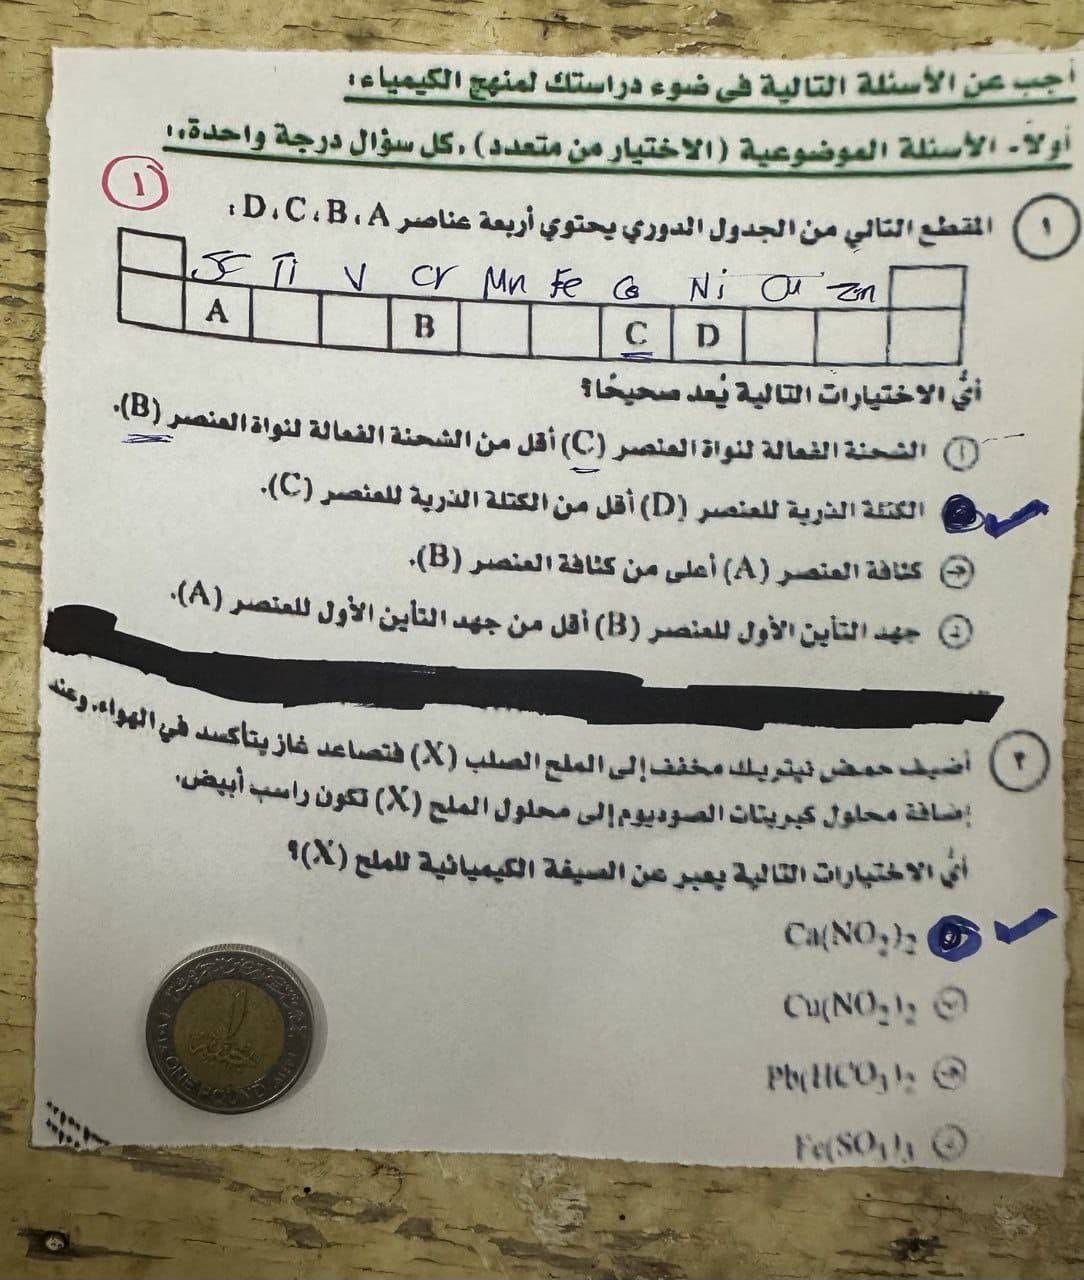 أجب عن الأسئلة التالية في ضوء دراستك لمنهج الكيمياء:
أولاً- الأسئلة الموضوعية (الاختيار من متعدد) ،كل سؤال درجة واحدة،:
١
١ المقطع التالي من الجدول الدوري يحتوي أربعة عناصر D ، C ، B ، A :
Sc Ti V Cr Mn Fe Co Ni Cu Zn
A B C D
أيُّ الاختيارات التالية يُعد صحيحًا؟
أ الشحنة الفعالة لنواة العنصر (C) أقل من الشحنة الفعالة لنواة العنصر (B).
الكتلة الذرية للعنصر (D) أقل من الكتلة الذرية للعنصر (C).
ج كثافة العنصر (A) أعلى من كثافة العنصر (B).
د جهد التأين الأول للعنصر (B) أقل من جهد التأين الأول للعنصر (A).
٢ أضيف حمض نيتريك مخفف إلى الملح الصلب (X) فتصاعد غاز يتأكسد في الهواء، وعند
إضافة محلول كبريتات الصوديوم إلى محلول الملح (X) تكون راسب أبيض،
أيُّ الاختيارات التالية يعبر عن الصيغة الكيميائية للملح (X)؟
Ca(NO₂)₂
ب Cu(NO₂)₂
ج Pb(HCO₃)₂
د
ONE POUND